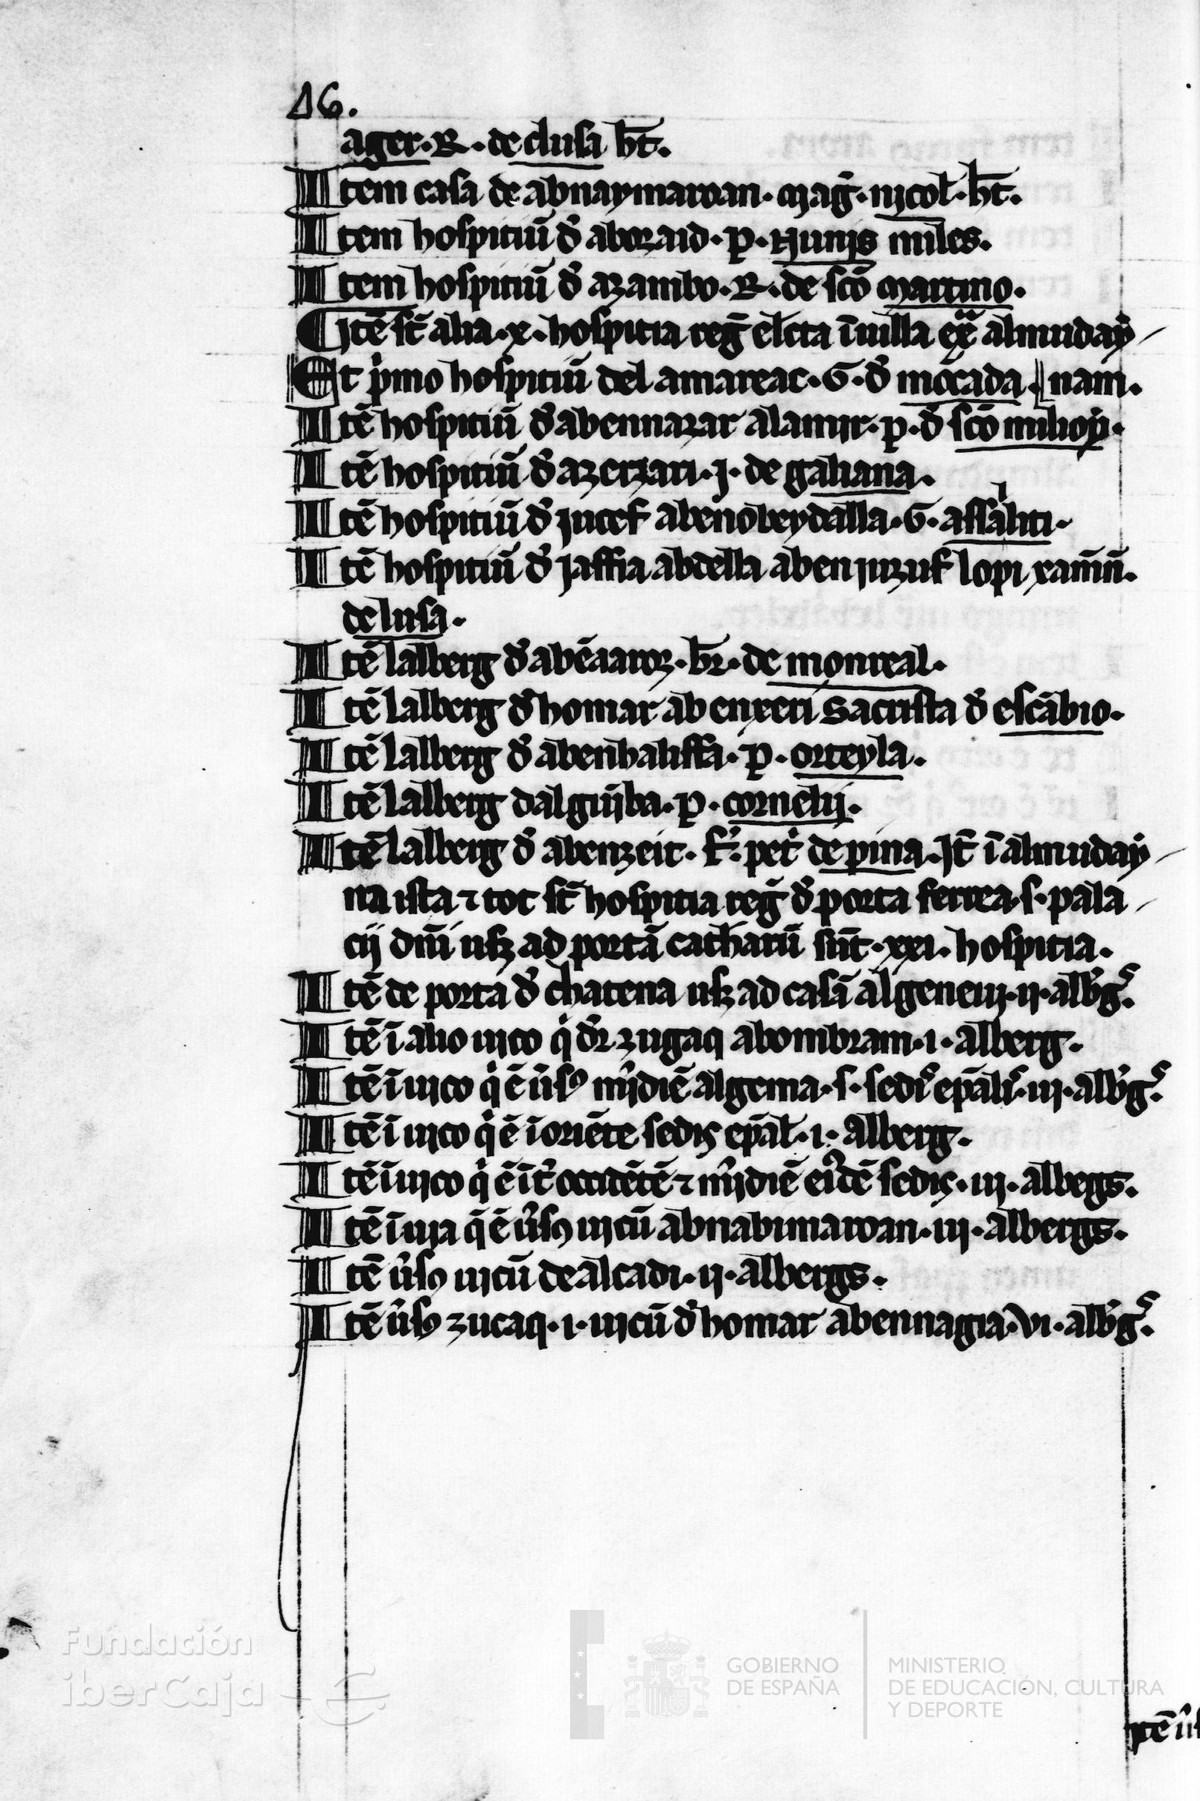 16.
ager. R. de clusa hт̄.
Item casa de abnaymaroan. mag̃. nicol. hт̄.
Item hospitiũ đ aboraid. p. nunis miles.
Item hospitiũ đ azambo. R. de sc̃o martino.
Itẽ st̃ alia .x. hospitia reg̃ elc̃ta ĩ uilla ex̃ almuday
Et p̾mo hospitiũ del amareac. G. đ mõcada. nam.
Itẽ hospitiũ đ abennazar alamir. p. đ sc̃o
Itẽ hospitiũ đ azerzari. J. de galiana.
Itẽ hospitiũ đ jucef abenobeydalla. G. assaliti.
Itẽ hospitiũ đ jaffia abdella aben juzuf lopi xam̃ñ.
de lusa.
Itẽ lalberg đ abẽaaroz. br̃. de monreal.
Itẽ lalberg đ homar abenxeri sacrista đ escãbio.
Itẽ lalberg đ abenhaliffa. p. orteyla.
Itẽ lalberg dalguiba. p. cornelij.
Itẽ lalberg đ abenzeit. f̃. pet̾ de pina. It̃ ĩ almuday
na ista ⁊ tot st̃ hospitia reg̃ đ porta ferrea. s. pala
cij dñi usqʒ ad portã catharũ sũt .xxi. hospitia.
Itẽ de porta đ chatena usqʒ ad casã algeneui .ii. alb̾g̾.
Itẽ ĩ alio uico q̾ dr̃ zugaq abombram .i. alberg.
Itẽ ĩ uico q̾ ẽ ũs⁹ m̾idiẽ algema. s. sedi̾ ep̃ali̾ .iii. alb̾g̾.
Itẽ ĩ uico q̾ ẽ ĩ oriẽte sedis ep̃al .i. alberg.
Itẽ ĩ uico q̾ ẽ ĩt̾ occidẽtẽ ⁊ m̾idiẽ ei⁹dẽ sedis .iii. albegs.
Itẽ ĩ uia q̃ ẽ ũs⁹ uicũ abnabimaroan .iii. albergs.
Itẽ ũs⁹ uicũ de alcadi .ii. albergs.
Itẽ ũs⁹ zucaq .i. uicũ đ homar abennagia .vi. alb̾g̾.
Fundación
iberCaja
GOBIERNO
DE ESPAÑA
MINISTERIO
DE EDUCACIÓN, CULTURA
Y DEPORTE